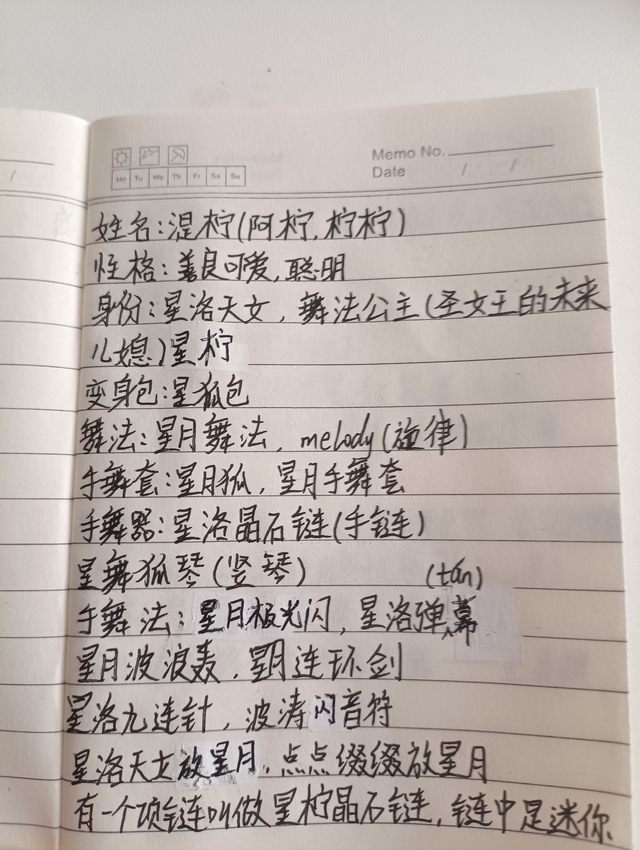 Memo No.
Date / /
Mo Tu We Th Fr Sa Su
/
姓名:湜柠(阿柠,柠柠)
性格:善良可爱,聪明
身份:星洛天女,舞法公主(圣女王的未来
儿媳)星柠
变身包:星狐包
舞法:星月舞法,melody(旋律)
手舞套:星月狐,星月手舞套
手舞器:星洛晶石链(手链)
星舞狐琴(竖琴)
(tán)
手舞法:星月极光闪,星洛弹幕
星月波浪轰,星月连环剑
星洛九连针,波涛闪音符
星洛天女放星月,点点缀缀放星月
有一个项链叫做星柠晶石链,链中是迷你